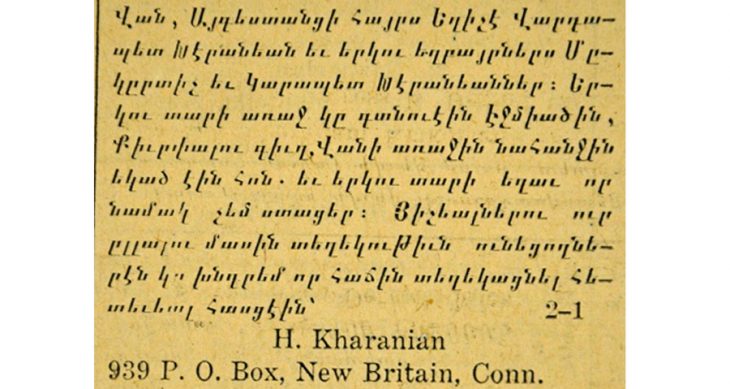 Վան, Այգեստանցի Հայրս Եղիշէ Վարդա–
պետ Խէրանեան եւ երկու եղբայրներս Մը–
կըրտիչ եւ Կարապետ Խէրանեաններ։ Եր–
կու տարի առաջ կը գտնուէին Էջմիածին,
Քիւրփալու գիւղ. Վանի առաջին նահանջին
եկած էին հոն. եւ երկու տարի եղաւ որ
նամակ չեմ ստացեր։ Յիշեալներու ուր
ըլլալու մասին տեղեկութիւն ունեցողնե–
րէն կը խնդրեմ որ հաճին տեղեկացնել հե–
տեւեալ հասցէին՝ 2–1
H. Kharanian
939 P. O. Box, New Britain, Conn.